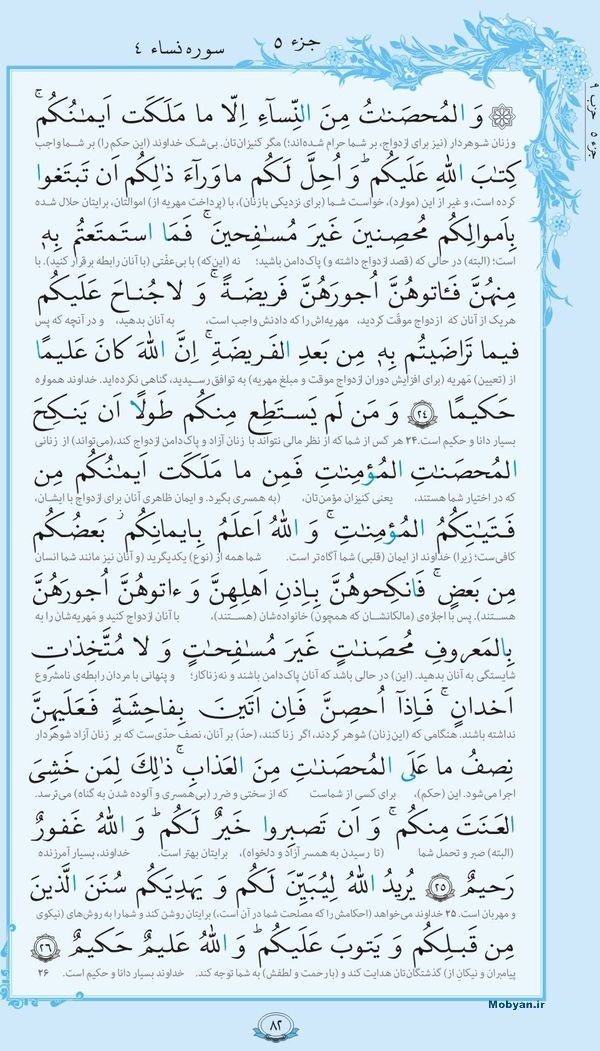 جزء ۵
سوره نساء ۴
جزء ۵ حزب ۹
وَ المُحصَنٰتُ مِنَ النِّسآءِ اِلّا ما مَلَكَت اَيمٰنُكُم ۚ
و زنان شوهردار (نیز برای ازدواج، بر شما حرام شده‌اند؛) مگر کنیزان‌تان. بی‌شک خداوند (این حکم را) بر شما واجب
كِتٰبَ اللّٰهِ عَلَيكُم ۗ وَ اُحِلَّ لَكُم ما وَرآءَ ذٰلِكُم اَن تَبتَغوا
کرده است، و غیر از این (موارد)، خواست شما (برای نزدیکی بازنان)، با (پرداخت مهریه از) اموالتان، برایتان حلال شده
بِاَموالِكُم مُحصِنينَ غَيرَ مُسٰفِحينَ ۚ فَمَا استَمتَعتُم بِهٖ
است؛ (البته) در حالی که (قصد ازدواج داشته و) پاک‌دامن باشید؛ نه (این‌که) با بی‌عفّتی (با آنان رابطه برقرار کنید). با
مِنهُنَّ فَـٔاتوهُنَّ اُجورَهُنَّ فَريضَةً ۚ وَ لا جُناحَ عَلَيكُم
هریک از آنان که ازدواج موقّت کردید، مهریه‌اش را که دادنش واجب است، به آنان بدهید، و در آنچه که پس
فيما تَراضَيتُم بِهٖ مِن بَعدِ الفَريضَةِ ۚ اِنَّ اللّٰهَ كانَ عَليمًا
از (تعیین) مهریه (برای افزایش دوران ازدواج موقت و مبلغ مهریه) به توافق رسیدید، گناهی نکرده‌اید. خداوند همواره
حَكيمًا ۲۴ وَ مَن لَم يَستَطِع مِنكُم طَولًا اَن يَنكِحَ
بسیار دانا و حکیم است. ۲۴ هر کس از شما که از نظر مالی نتواند با زنان آزاد و پاک‌دامن ازدواج کند، (می‌تواند) از زنانی
المُحصَنٰتِ المُؤمِنٰتِ فَمِن ما مَلَكَت اَيمٰنُكُم مِن
که در اختیار شما هستند، یعنی کنیزان مؤمن‌تان، (به همسری بگیرد. و ایمان ظاهری آنان برای ازدواج با ایشان،
فَتَيٰتِكُمُ المُؤمِنٰتِ ۚ وَ اللّٰهُ اَعلَمُ بِايمانِكُم ۚ بَعضُكُم
کافی‌ست؛ زیرا) خداوند از ایمان (قلبی) شما آگاه‌تر است. شما همه از (نوع) یکدیگرید (و آنان نیز مانند شما انسان
مِن بَعضٍ ۚ فَانكِحوهُنَّ بِاِذنِ اَهلِهِنَّ وَ ءاتوهُنَّ اُجورَهُنَّ
هستند). پس با اجازه‌ی (مالکانشان که همچون) خانواده‌شان (هستند)، با آنان ازدواج کنید و مهریه‌شان را به
بِالمَعروفِ مُحصَنٰتٍ غَيرَ مُسٰفِحٰتٍ وَ لا مُتَّخِذٰتِ
شایستگی به آنان بدهید. (این) در حالی باشد که آنان پاک‌دامن باشند و نه زناکار؛ و پنهانی با مردان رابطه‌ی نامشروع
اَخدانٍ ۚ فَاِذآ اُحصِنَّ فَاِن اَتَينَ بِفاحِشَةٍ فَعَلَيهِنَّ
نداشته باشند. هنگامی که (این‌زنان) شوهر کردند، اگر زنا کنند، (حدّ) بر آنان، نصف حدّی‌ست که بر زنان آزاد شوهردار
نِصفُ ما عَلَى المُحصَنٰتِ مِنَ العَذابِ ۚ ذٰلِكَ لِمَن خَشِىَ
اجرا می‌شود. این (حکم)، برای کسی از شماست که از سختی و ضرر (بی‌همسری و آلوده شدن به گناه) می‌ترسد.
العَنَتَ مِنكُم ۚ وَ اَن تَصبِروا خَيرٌ لَكُم ۗ وَ اللّٰهُ غَفورٌ
(البته) صبر و تحمل شما (تا رسیدن به همسر آزاد و دلخواه)، برایتان بهتر است. خداوند، بسیار آمرزنده
رَحيمٌ ۲۵ يُريدُ اللّٰهُ لِيُبَيِّنَ لَكُم وَ يَهدِيَكُم سُنَنَ الَّذينَ
و مهربان است. ۲۵ خداوند می‌خواهد (احکامش را که مصلحت شما در آن است،) برایتان روشن کند و شما را به روش‌های (نیکوی
مِن قَبلِكُم وَ يَتوبَ عَلَيكُم ۗ وَ اللّٰهُ عَليمٌ حَكيمٌ ۲۶
پیامبران و نیکانِ از) گذشتگان‌تان هدایت کند و (با رحمت و لطفش) به شما توجه کند. خداوند بسیار دانا و حکیم است. ۲۶
Mobyan.ir
۸۲